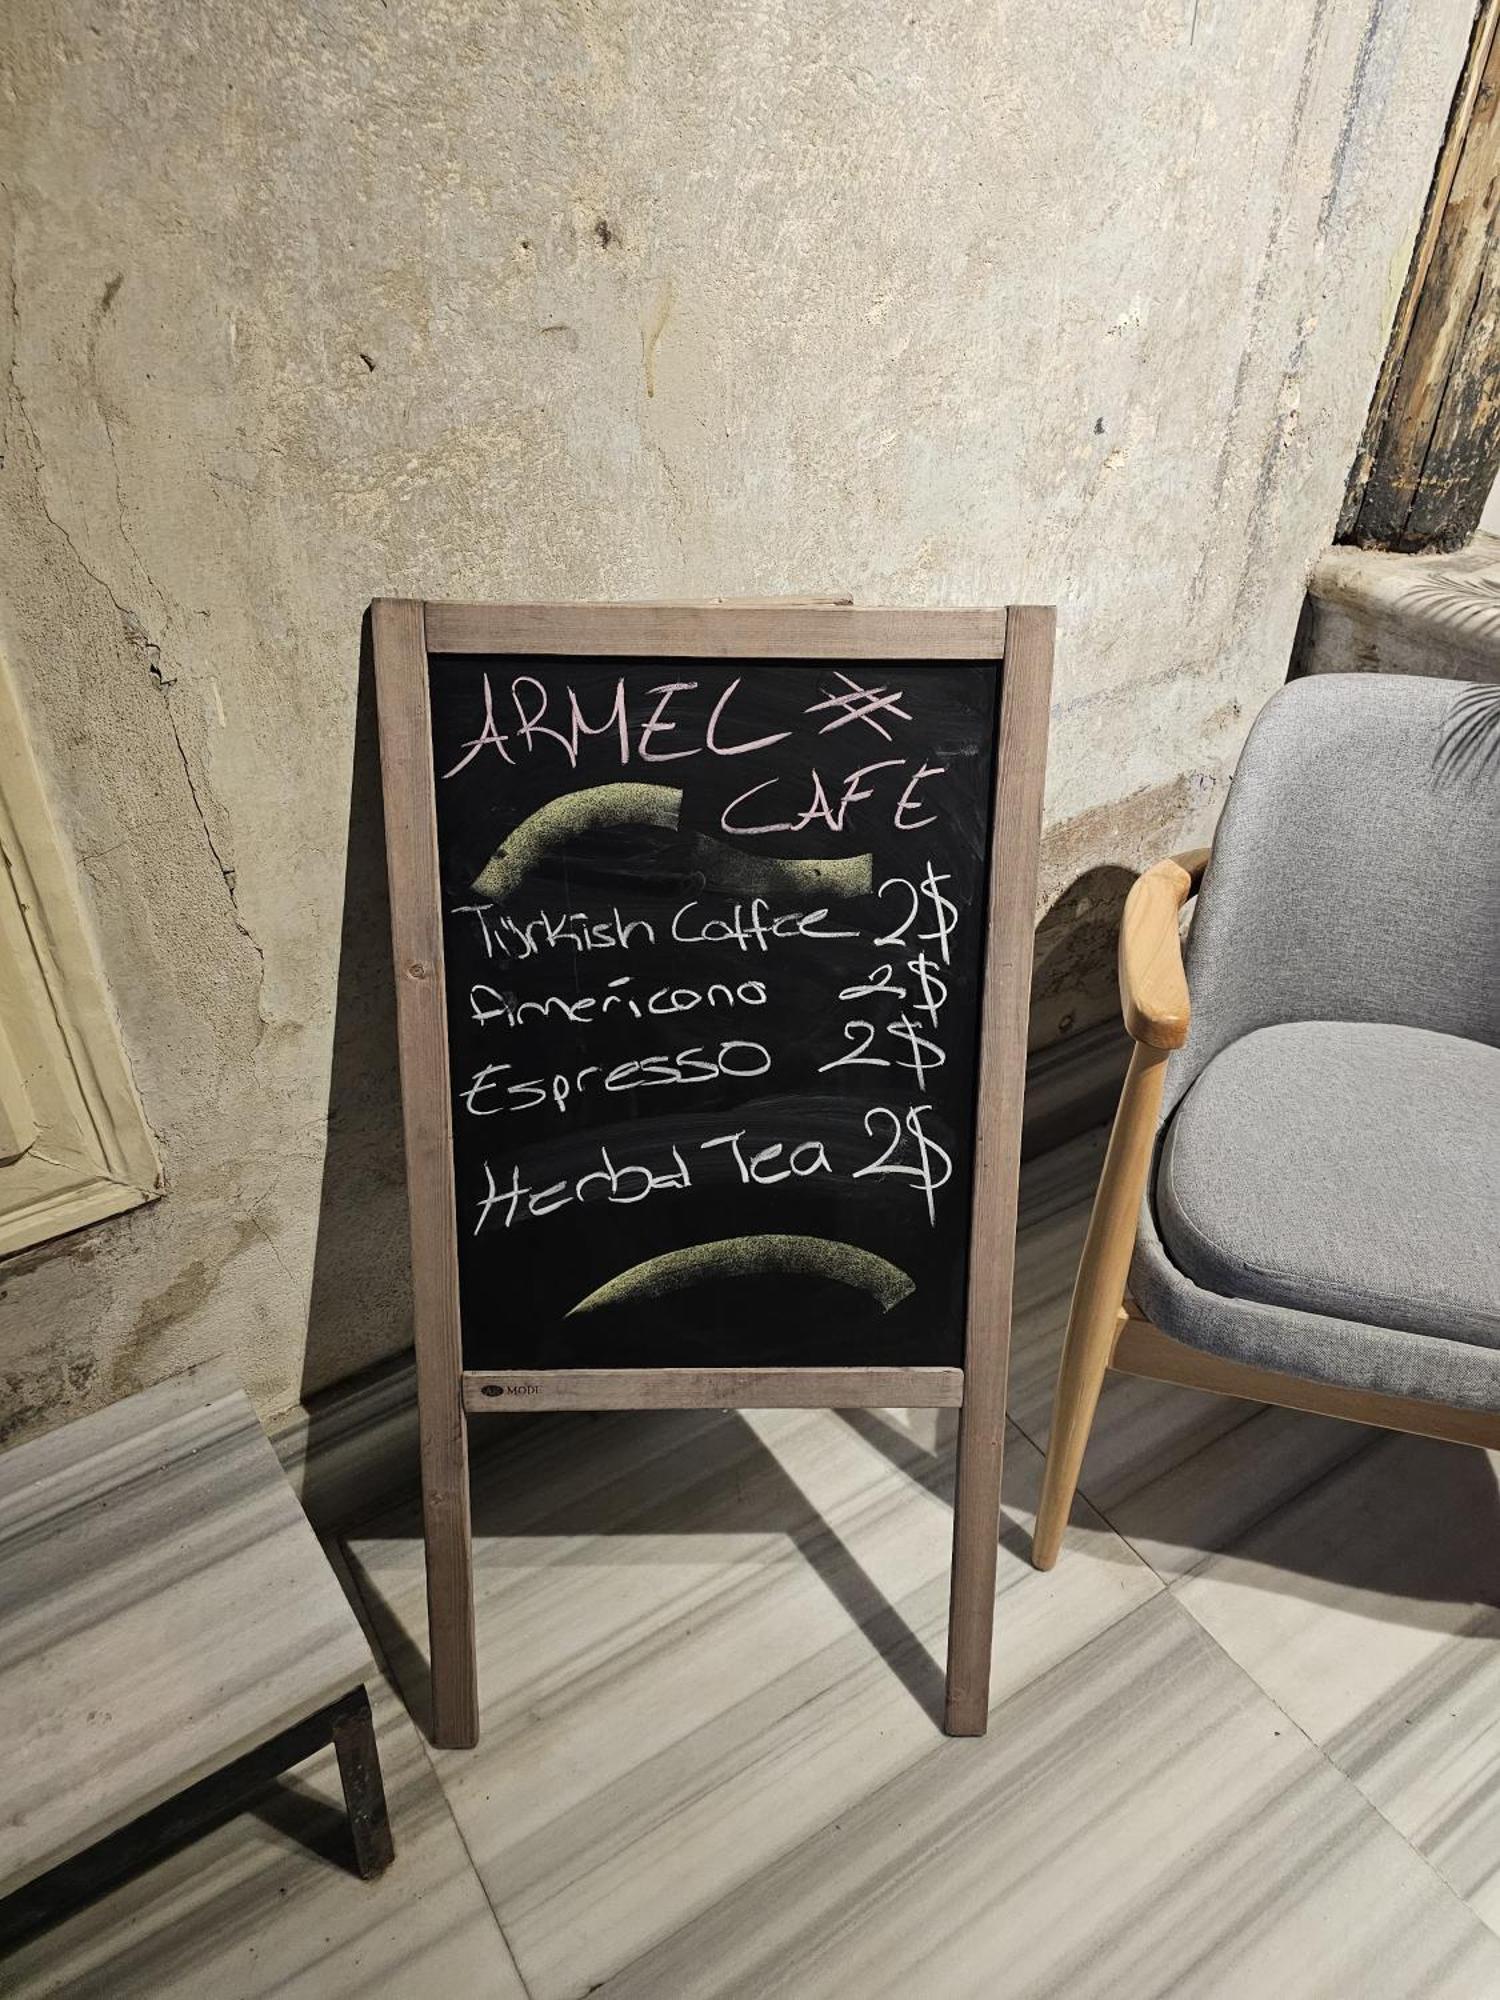 ARMEL #
CAFE
Türkish Coffee 2$
Americano 2$
Espresso 2$
Herbal Tea 2$
MODE